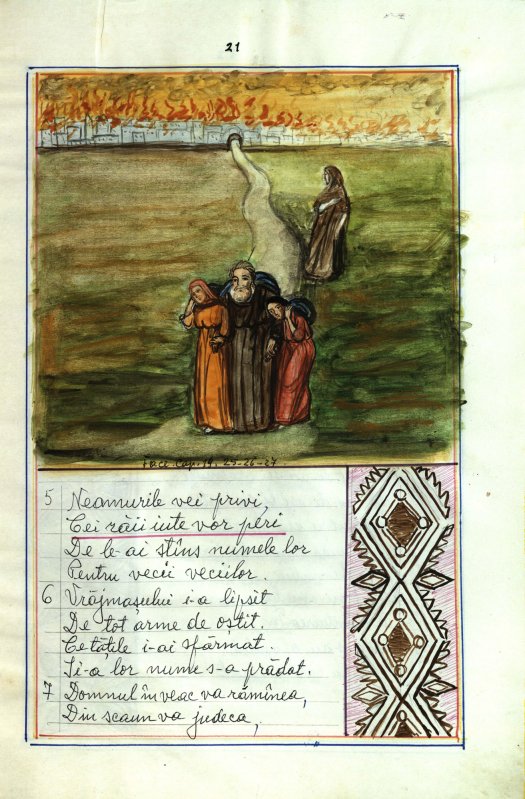 21
Face. Cap. 19. 25-26-27.
5 Neamurile vei privi,
Cei răii iute vor peri
De le-ai stîns numele lor
Pentru vecii veciilor.
6 Vrăjmașului i-a lipsit
De tot arme de oștit.
Cetățile i-ai sfărmat.
Și-a lor nume s-a prădat.
7 Domnul în veac va rămînea,
Din scaun va judeca,